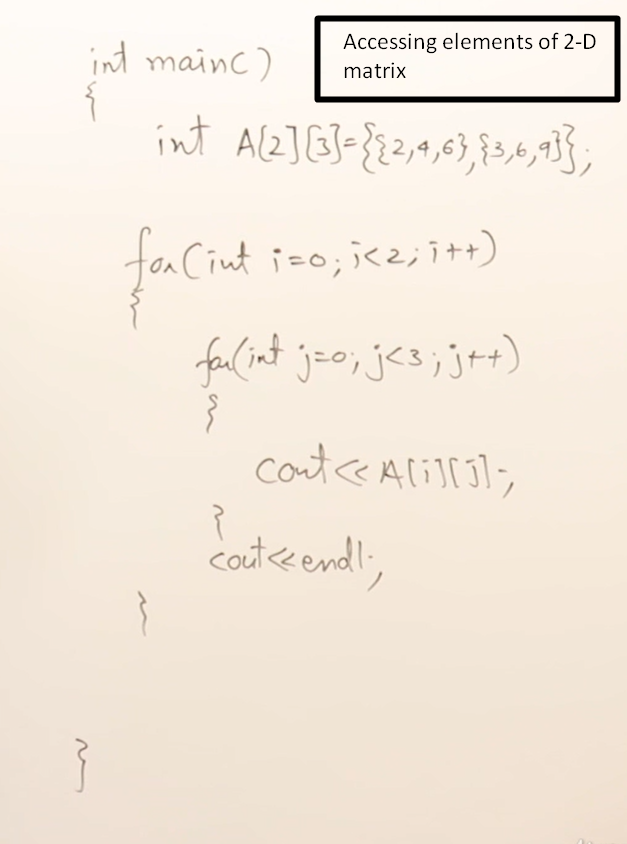 Accessing elements of 2-D
matrix
int main()
{
int A[2][3]={{2,4,6},{3,6,9}};
for(int i=0; i<2; i++)
{
for(int j=0; j<3; j++)
{
cout<<A[i][j];
}
cout<<endl;
}
}